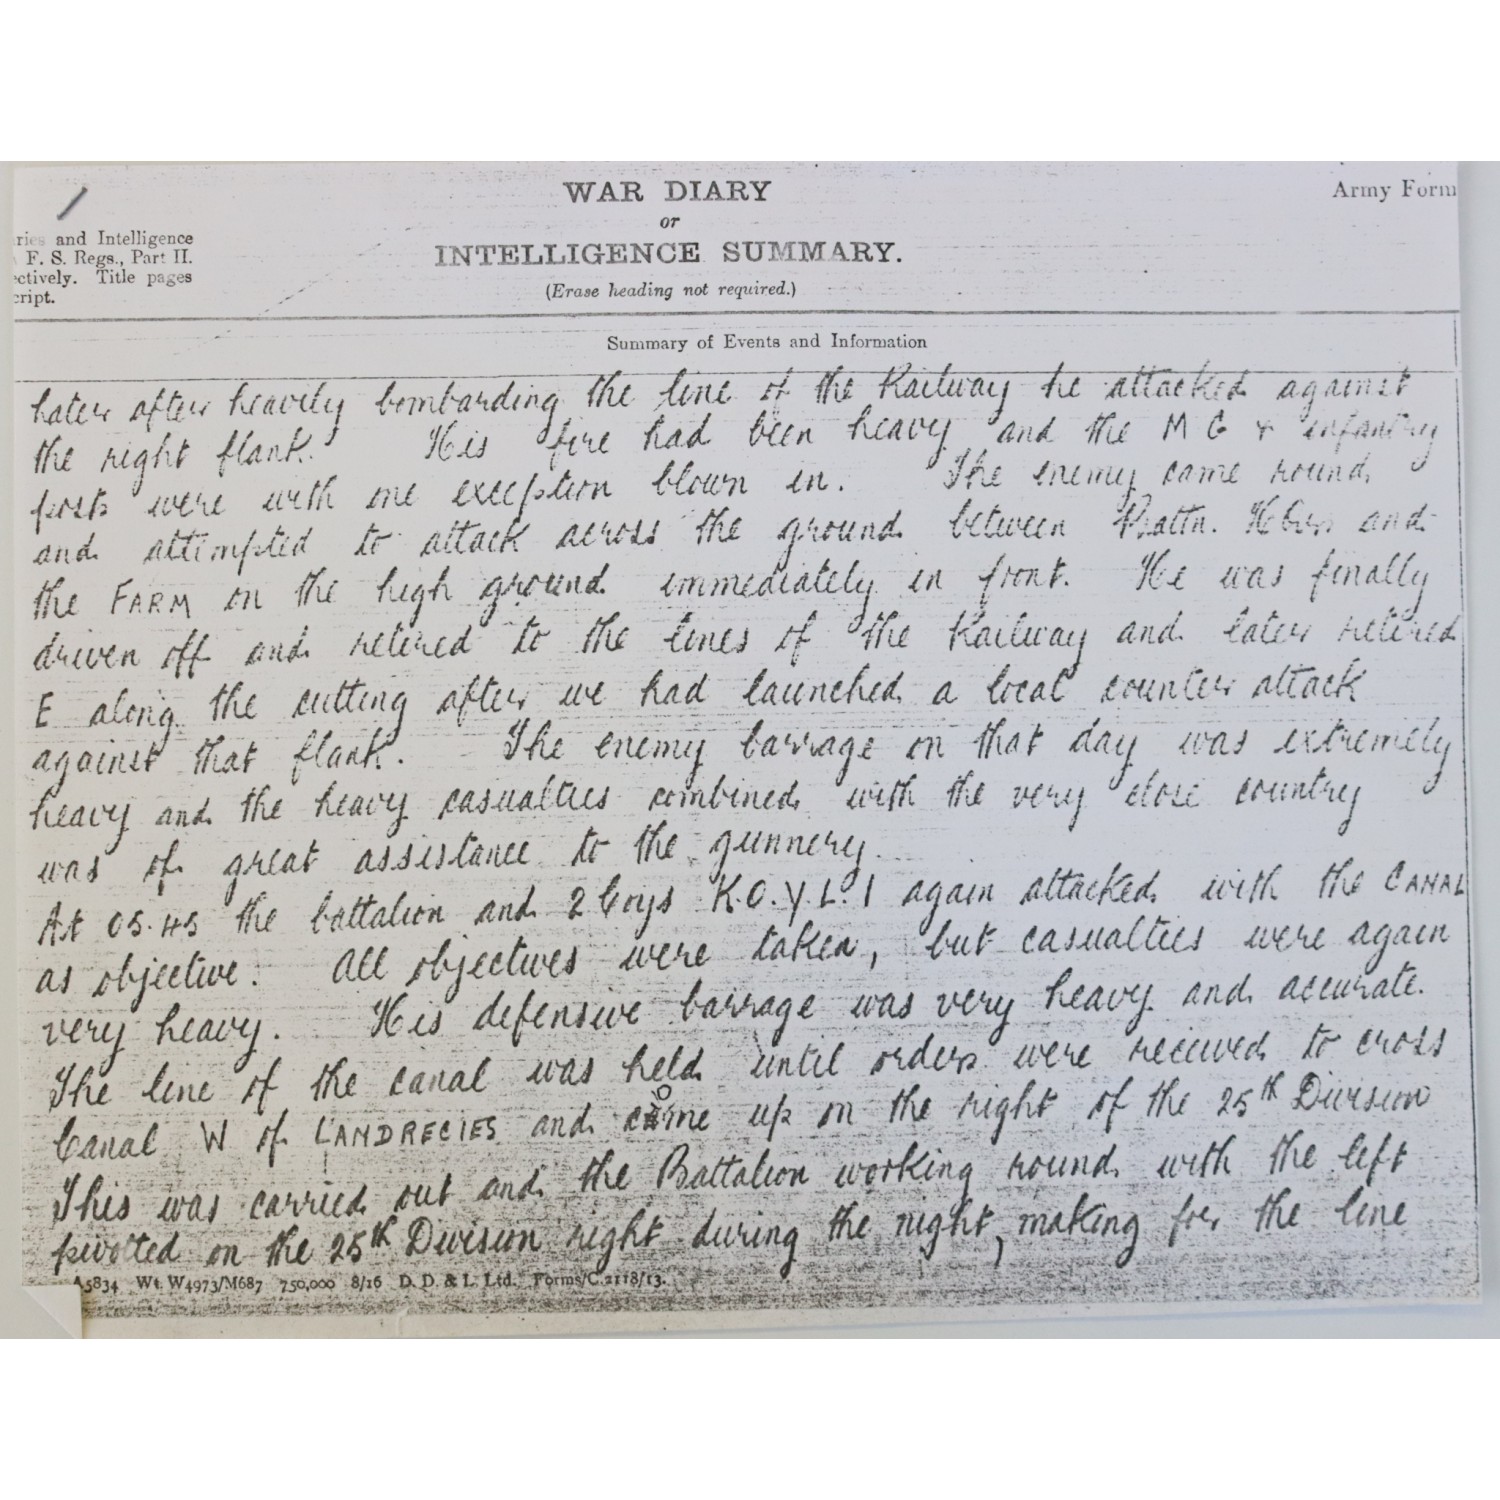 WAR DIARY
or
INTELLIGENCE SUMMARY.
(Erase heading not required.)
Army Form
ries and Intelligence
F. S. Regs., Part II.
ectively. Title pages
cript.
Summary of Events and Information
Later after heavily bombarding the line of the Railway he attacked against
the right flank. His fire had been heavy and the M G & infantry
posts were with one exception blown in. The enemy came round
and attempted to attack across the ground between Battn. Hdqrs and
the FARM on the high ground immediately in front. He was finally
driven off and retired to the lines of the Railway and later retired
E along the cutting after we had launched a local counter attack
against that flank. The enemy barrage on that day was extremely
heavy and the heavy casualties combined with the very close country
was of great assistance to the gunnery.
At 05.45 the battalion and 2 Coys K.O.Y.L.I again attacked with the CANAL
as objective. All objectives were taken, but casualties were again
very heavy. His defensive barrage was very heavy and accurate.
The line of the canal was held until orders were received to cross
Canal W of LANDRECIES and come up on the right of the 25th Division
This was carried out and the Battalion working round with the left
pivotted on the 25th Division right during the night, making for the line
A5834 Wt. W4973/M687 750,000 8/16 D. D. & L. Ltd. Forms/C.2118/13.